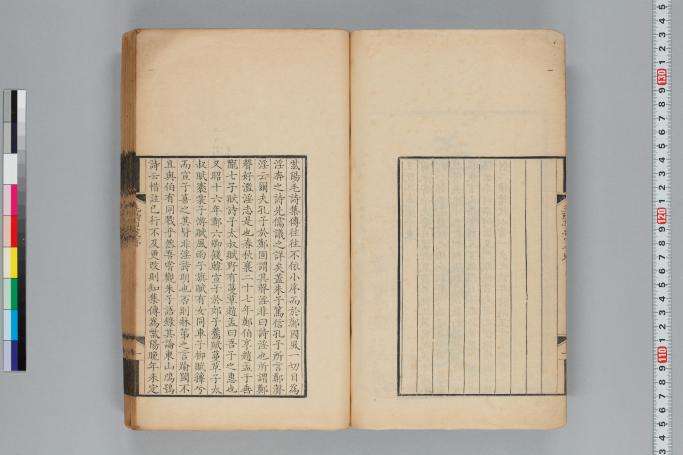 紫陽毛詩集傳往往不依小序而於鄭國風一切目為
淫奔之詩先儒議之詳矣蓋朱子篤信孔子所言鄭聲
淫云爾夫孔子於鄭固謂其聲淫非曰詩淫也所謂鄭
聲好濫淫志是也春秋襄二十七年鄭伯享趙孟子展
賦七子賦詩子太叔賦野有蔓草趙孟曰吾子之惠也
又昭十六年鄭六卿餞韓宣子於郊子齹賦蔓草子太
叔賦褰裳子游賦風雨子旗賦有女同車子柳賦蘀兮
而宣子喜之其皆非淫詩明也否則牀笫之言踰閾不
且與伯有同戮乎然吾嘗觀朱子語錄其論東山鴟鴞
詩云惜註已行不及更改則知集傳為紫陽晚年未定